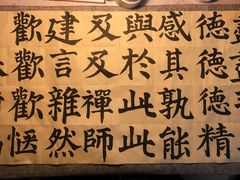 德德德精
感其孰能
與於此此
及及禪師
建言雜然
歡歡歡愜